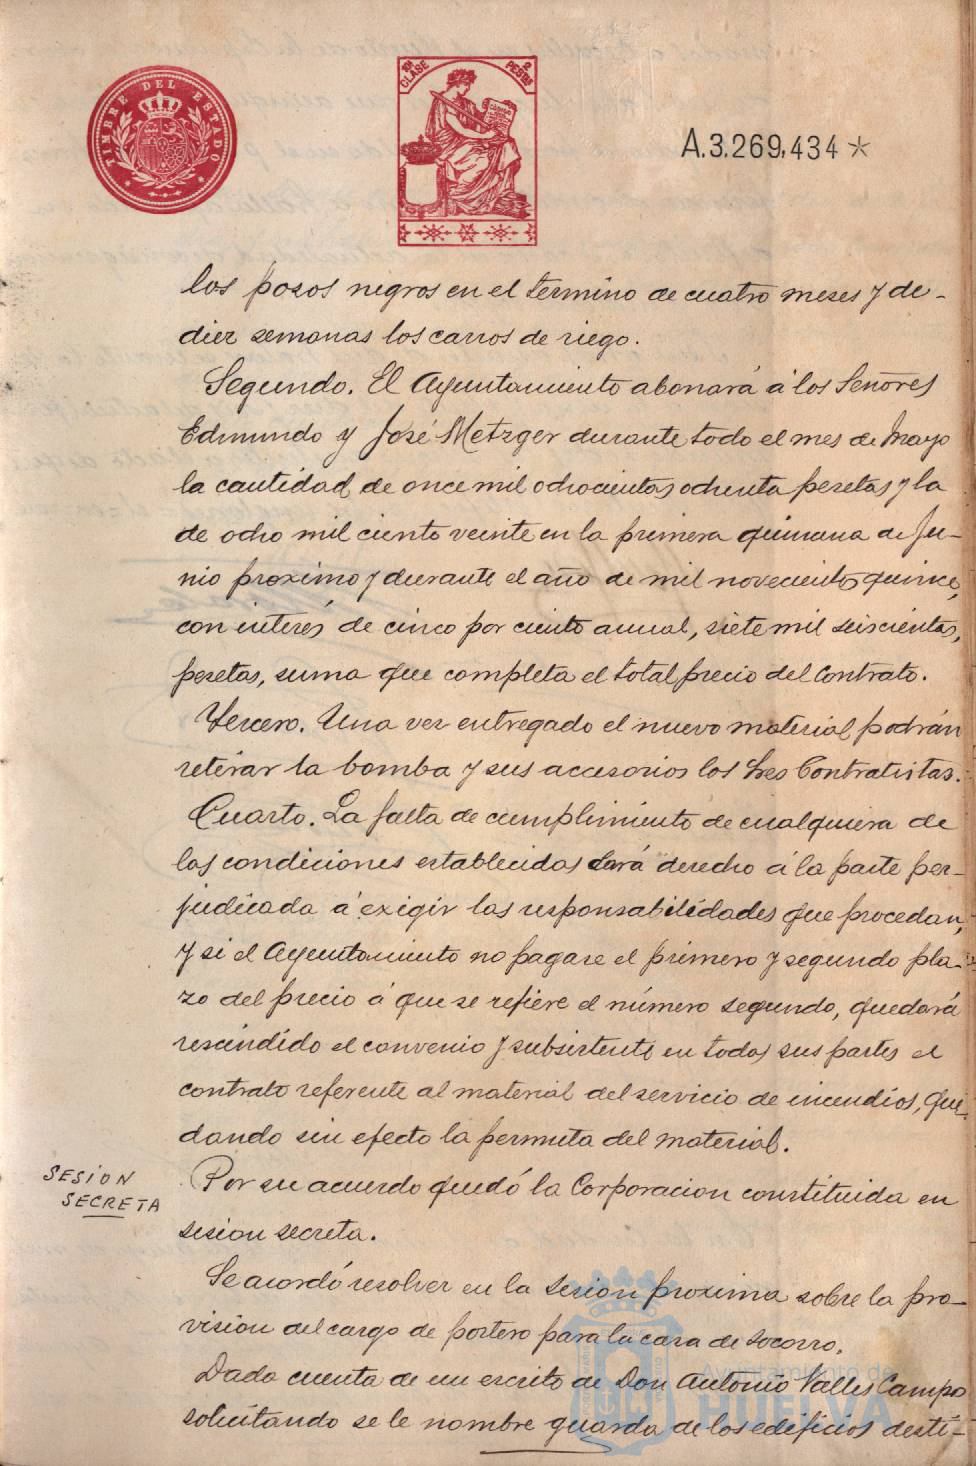 TIMBRE DEL ESTADO
10ª CLASE
2 PESETAS
A.3.269,434*
los pozos negros en el termino de cuatro meses y de-
diez semanas los carros de riego.
Segundo. El Ayuntamiento abonará á los Señores
Edmundo y José Metzger durante todo el mes de Mayo
la cantidad de once mil ochocientas ochenta pesetas y la
de ocho mil ciento veinte en la primera quincena de Ju-
nio proximo y durante el año de mil novecientos quince,
con interés de cinco por ciento anual, siete mil seiscientas,
pesetas, suma que completa el total precio del Contrato.
Tercero. Una vez entregado el nuevo material podrán
retirar la bomba y sus accesorios los Sres Contratistas.
Cuarto. La falta de cumplimiento de cualquiera de
las condiciones establecidas dará derecho á la parte per-
judicada á exigir las responsabilidades que procedan,
y si el Ayuntamiento no pagare el primero y segundo pla-
zo del precio á que se refiere el número segundo, quedará
rescindido el convenio y subsistente en todas sus partes el
contrato referente al material del servicio de incendios, que-
dando sin efecto la permuta del material.
SESION
SECRETA
Por su acuerdo quedó la Corporacion constituida en
sesion secreta.
Se acordó resolver en la sesion proxima sobre la pro-
vision del cargo de portero para la casa de socorro.
Dada cuenta de un escrito de Don Antonio Valles Campo
solicitando se le nombre guarda de los edificios desti-
Ayuntamiento de
HUELVA